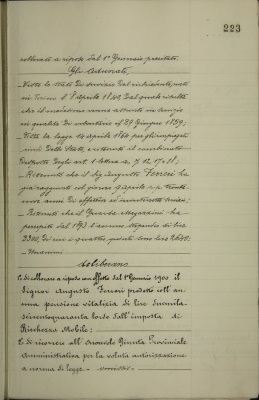 223
collocato a riposo dal 1° Gennaio prossimo
Gli Adunati
Visto lo stato di servizio del richiedente, nato
in Torino il 7 Aprile 1840, dal quale risulta
che il medesimo venne assunto in servizio
in qualità di volontario il 29 Giugno 1859;
Vista la legge 14 aprile 1864 per gl'impiegati
civili dello Stato, e ritenuto il combinato
disposto degli art. 1 lettera
Ritenuto che il Sig. Augusto Ferroni ha
già raggiunto col giorno 7 Aprile i trenta
nove anni di effettivo ed ininterrotto servizio;
Ritenuto che il Perito Magazzini ha
percepito dal 1893 l'annuo stipendio di lire
3300, di cui i quattro quinti sono lire 2640.
Unanimi
deliberano
1. di collocare a riposo con effetto dal 1° Gennaio 1900 il
Signor Augusto Ferroni predetto coll'an-
nua pensione vitalizia di lire duemila-
seicentoquaranta lorde dall'imposta di
Ricchezza Mobile:
2. di ricorrere all'onorevole Giunta Provinciale
Amministrativa per la voluta autorizzazione
a norma di legge. omissis